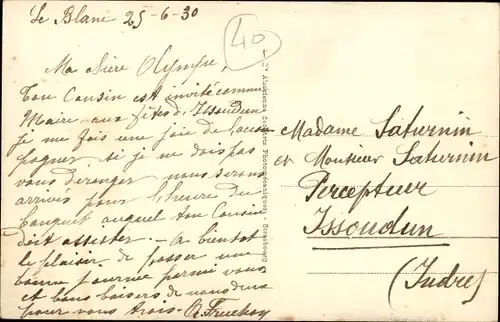 Le Blanc 25-6-30
40
Ma Chère Olympe,
Ton Cousin est invité comme
Maire aux fêtes d'Issoudun
je me fais une joie de l'accom
pagner, si je ne dois pas
vous déranger nous serons
arrivés pour l'heure du
banquet auquel ton Cousin
doit assister. - A bientôt
le plaisir de passer une
bonne journée parmi vous
et bons baisers de nous deux
pour vous trois -
Madame Saturnin
et Monsieur Saturnin
Percepteur
Issoudun
(Indre)